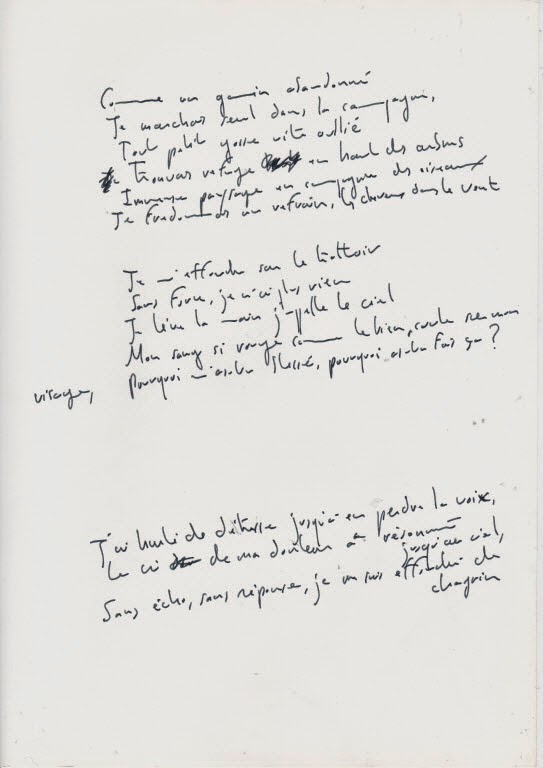 Comme un gamin abandonné
Je marchais seul dans la campagne,
Tout petit gosse vite oublié
Je trouvais refuge en haut des arbres
Immense paysage en compagnie des oiseaux
Je fredonnais un refrain, les cheveux dans le vent
Je m'effondre sur le trottoir
Sans force, je n'ai plus rien
Je lève la main j'appelle le ciel
Mon sang si rouge comme le tien, coule sur mon
visage,
Pourquoi m'as-tu blessé, pourquoi as-tu fais ça ?
J'ai hurlé de détresse jusqu'à en perdre la voix,
Le cri de ma douleur a résonné
jusqu'au ciel,
Sans écho, sans réponse, je m'en suis effondré de
chagrin